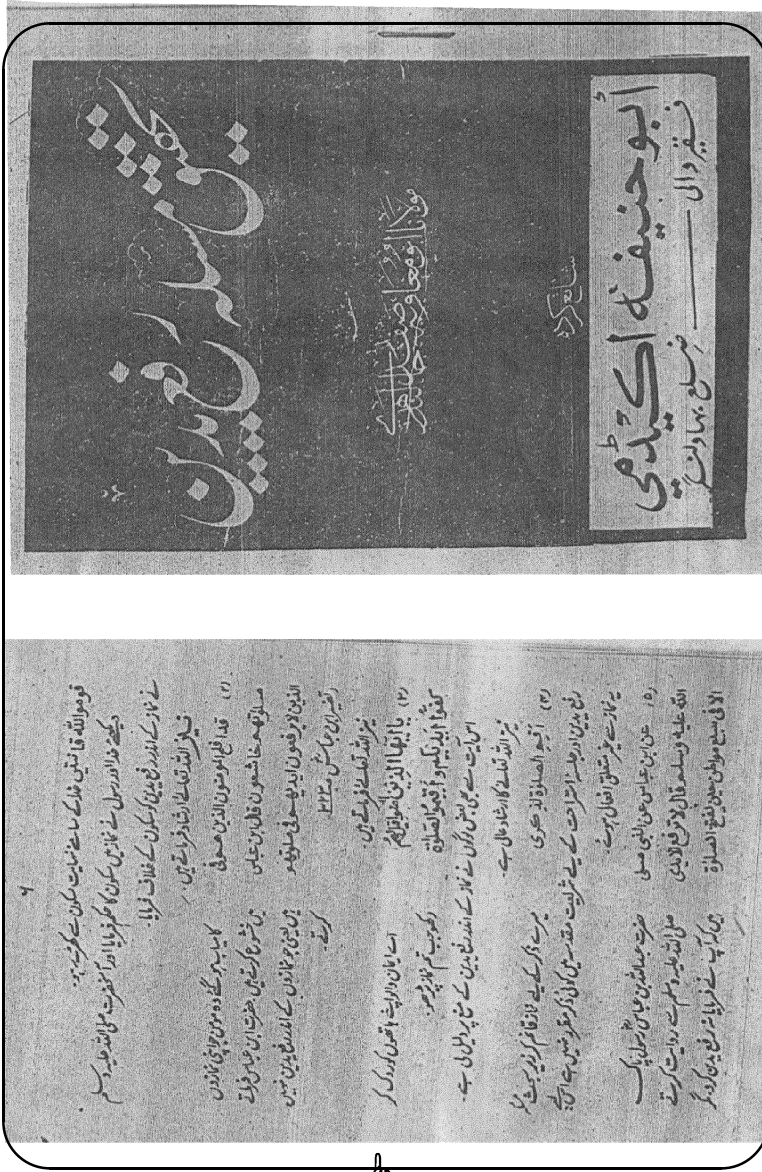 تحقیق مسئلہ رفع یدین
مولانا ابو معاویہ صفدر جالندھری
شائع کردہ
أبو حنیفہ اکیڈمی
فقیر والی — ضلع بہاولنگر
۶
قوموا للہ قانتین خدا کے سامنے نہایت سکون سے کھڑے ہو۔
دیکھئے خدا اور رسول نے نماز میں سکون کا حکم فرمایا اور آنحضرت صلی اللہ علیہ وسلم
نے نماز کے اندر رفع یدین کو سکون کے خلاف فرمایا۔
نیز اللہ تعالے ارشاد فرماتے ہیں
(۲) قد افلح المومنون الذین ھم فی
صلوتھم خاشعون قال ابن عباس
الذین لا یرفعون ایدیھم فی صلوتھم
(تفسیر ابن عباس ۲۱۲)
کامیاب ہو گئے وہ مومن جو اپنی نمازوں
میں خشوع کرتے ہیں حضرت ابن عباس فرماتے
ہیں یعنی جو نمازوں کے اندر رفع یدین نہیں
کرتے۔
نیز اللہ تعالے فرماتے ہیں
(۳) یا ایھا الذین امنوا قیل لھم
کفوا ایدیکم و اقیموا الصلوٰۃ
اے ایمان والو اپنے ہاتھوں کو روک کر
رکھو جب تم نماز پڑھو۔
اس آیت سے بھی بعض لوگوں نے نماز کے اندر رفع یدین کے منع پر دلیل لی ہے۔
نیز اللہ تعالے کا ارشاد عالی ہے۔
(۴) أقم الصلوٰۃ لذکری
میرے ذکر کے لیے نماز قائم کرو
رفع یدین اور جلسہ استراحت کے لیے شریعت مقدسہ میں کوئی ذکر مقرر نہیں ہے
یہ نماز سے غیر متعلق افعال ہوئے۔
(۵) عن ابن عباس عن النبی صلی
اللہ علیہ وسلم قال لا ترفع الایدی
الا فی سبع مواطن حین یفتتح الصلوٰۃ
حضرت عبداللہ بن عباس رسول پاک
صلی اللہ علیہ وسلم سے روایت کرتے
ہیں کہ آپ نے فرمایا نہ رفع یدین کرو مگر